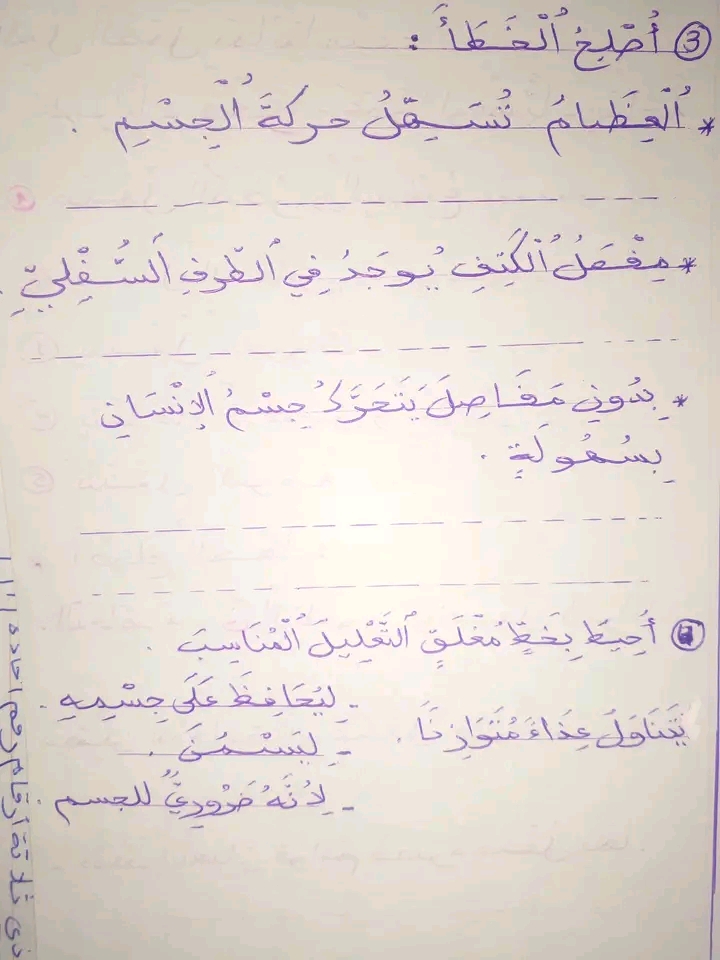 ③ أُصْلِحُ ٱلْخَطَأَ :
* ٱلْعِظَامُ تُسَهِّلُ حركةَ ٱلْجِسْمِ .
* مِفْصَلُ ٱلْكَتِفِ يُوجَدُ فِي ٱلطَّرفِ ٱلسُّفْلِيِّ .
* بِدُونِ مَفَاصِلَ يَتَحَرَّكُ جِسْمُ ٱلإِنْسَانِ
بِسُهُولَةٍ .
أُحِيطَ بِخَطٍّ مُغْلَقٍ ٱلتَّعْلِيلَ ٱلْمُنَاسِبَ .
يَتَنَاوَلَ غِذَاءَ مُتَوَازِنًا .
- لِيُحَافِظَ عَلَى جِسْمِهِ .
- لِيَسْمَنَ .
- لِأَنَّهُ ضَرُورِيٌّ للجسم .